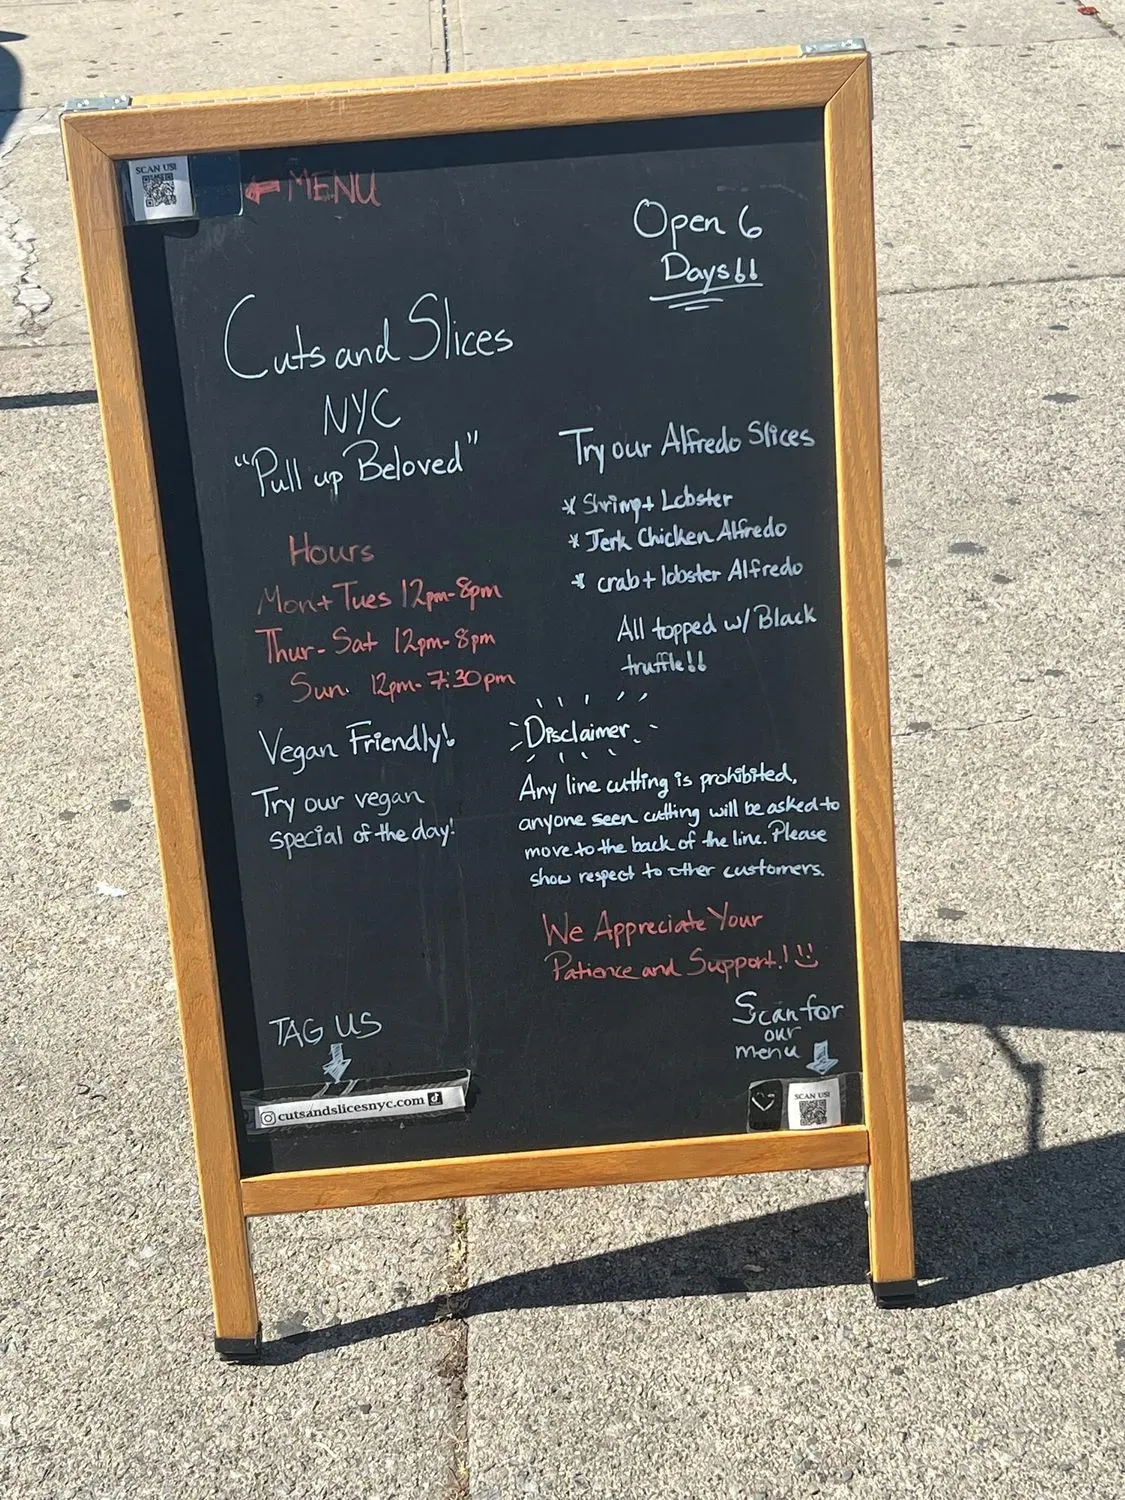 SCAN US!
← MENU
Open 6
Days!!
Cuts and Slices
NYC
"Pull up Beloved"
Hours
Mon + Tues 12pm-8pm
Thur - Sat 12pm-8pm
Sun. 12pm-7:30pm
Vegan Friendly!
Try our vegan
special of the day!
TAG US
cutsandslicesnyc.com
Try our Alfredo Slices
* Shrimp + Lobster
* Jerk Chicken Alfredo
* crab + lobster Alfredo
All topped w/ Black
truffle!!
Disclaimer
Any line cutting is prohibited,
anyone seen cutting will be asked to
move to the back of the line. Please
show respect to other customers.
We Appreciate Your
Patience and Support! :)
Scan for
our
menu
SCAN US!